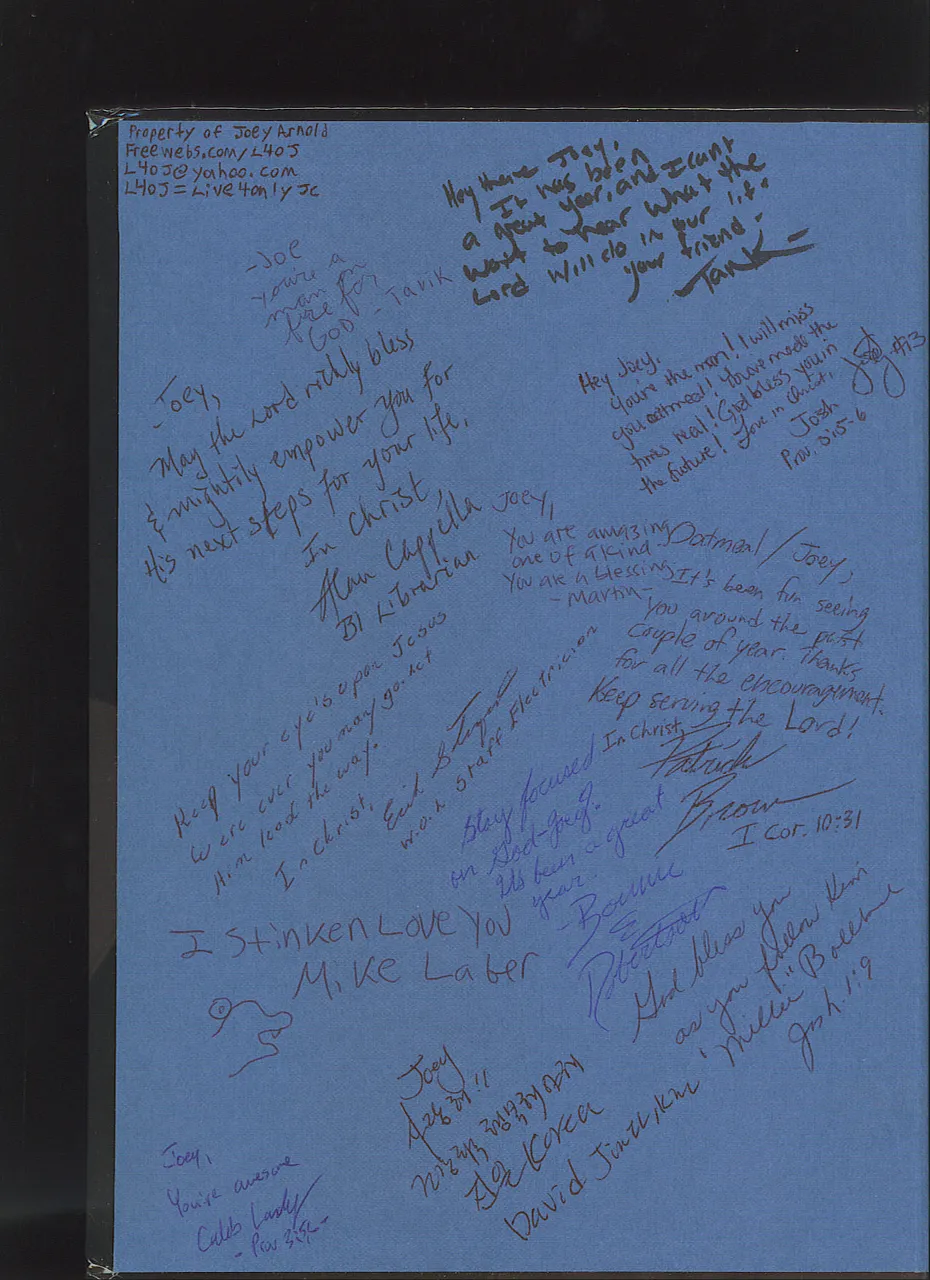 Property of Joey Arnold
Freewebs.com/L4oJ
L4oJ@yahoo.com
L4oJ = Live4only Jc
Hey there Joey,
It has been
a great year, and I cant
wait to hear what the
Lord will do in our life.
your friend,
Tank
-Joe
you're a
man on
fire for
GOD - Tavik
Joey,
May the Lord richly bless
& mightily empower you for
His next steps for your life,
In Christ,
Alan Cappella
BI Librarian
Hey Joey,
You're the man! I will miss
you oatmeal! You've made the
times real! God bless you in
the future! Love in Christ,
Josh
Prov. 3:5-6
#13
Joey,
You are amazing
one of a kind
You are a blessing
- Martin -
Oatmeal/Joey,
It's been fun seeing
you around the past
couple of year. Thanks
for all the encouragement.
Keep serving the Lord!
In Christ,
Patrick
Brown
I Cor. 10:31
Keep your eye's upon Jesus
were ever you may go. Let
Him lead the way.
In Christ,
w.o.l Staff Electrician
Stay focused
on God-Joey.
It's been a great
year.
I Stinken Love You
Mike Laber
God bless you
as you follow Him
"Millie"
Josh. 1:9
Joey
사랑해!!
Korea
David
Joey,
You're awesome
Caleb Lady
- Prov 3:5,6 -